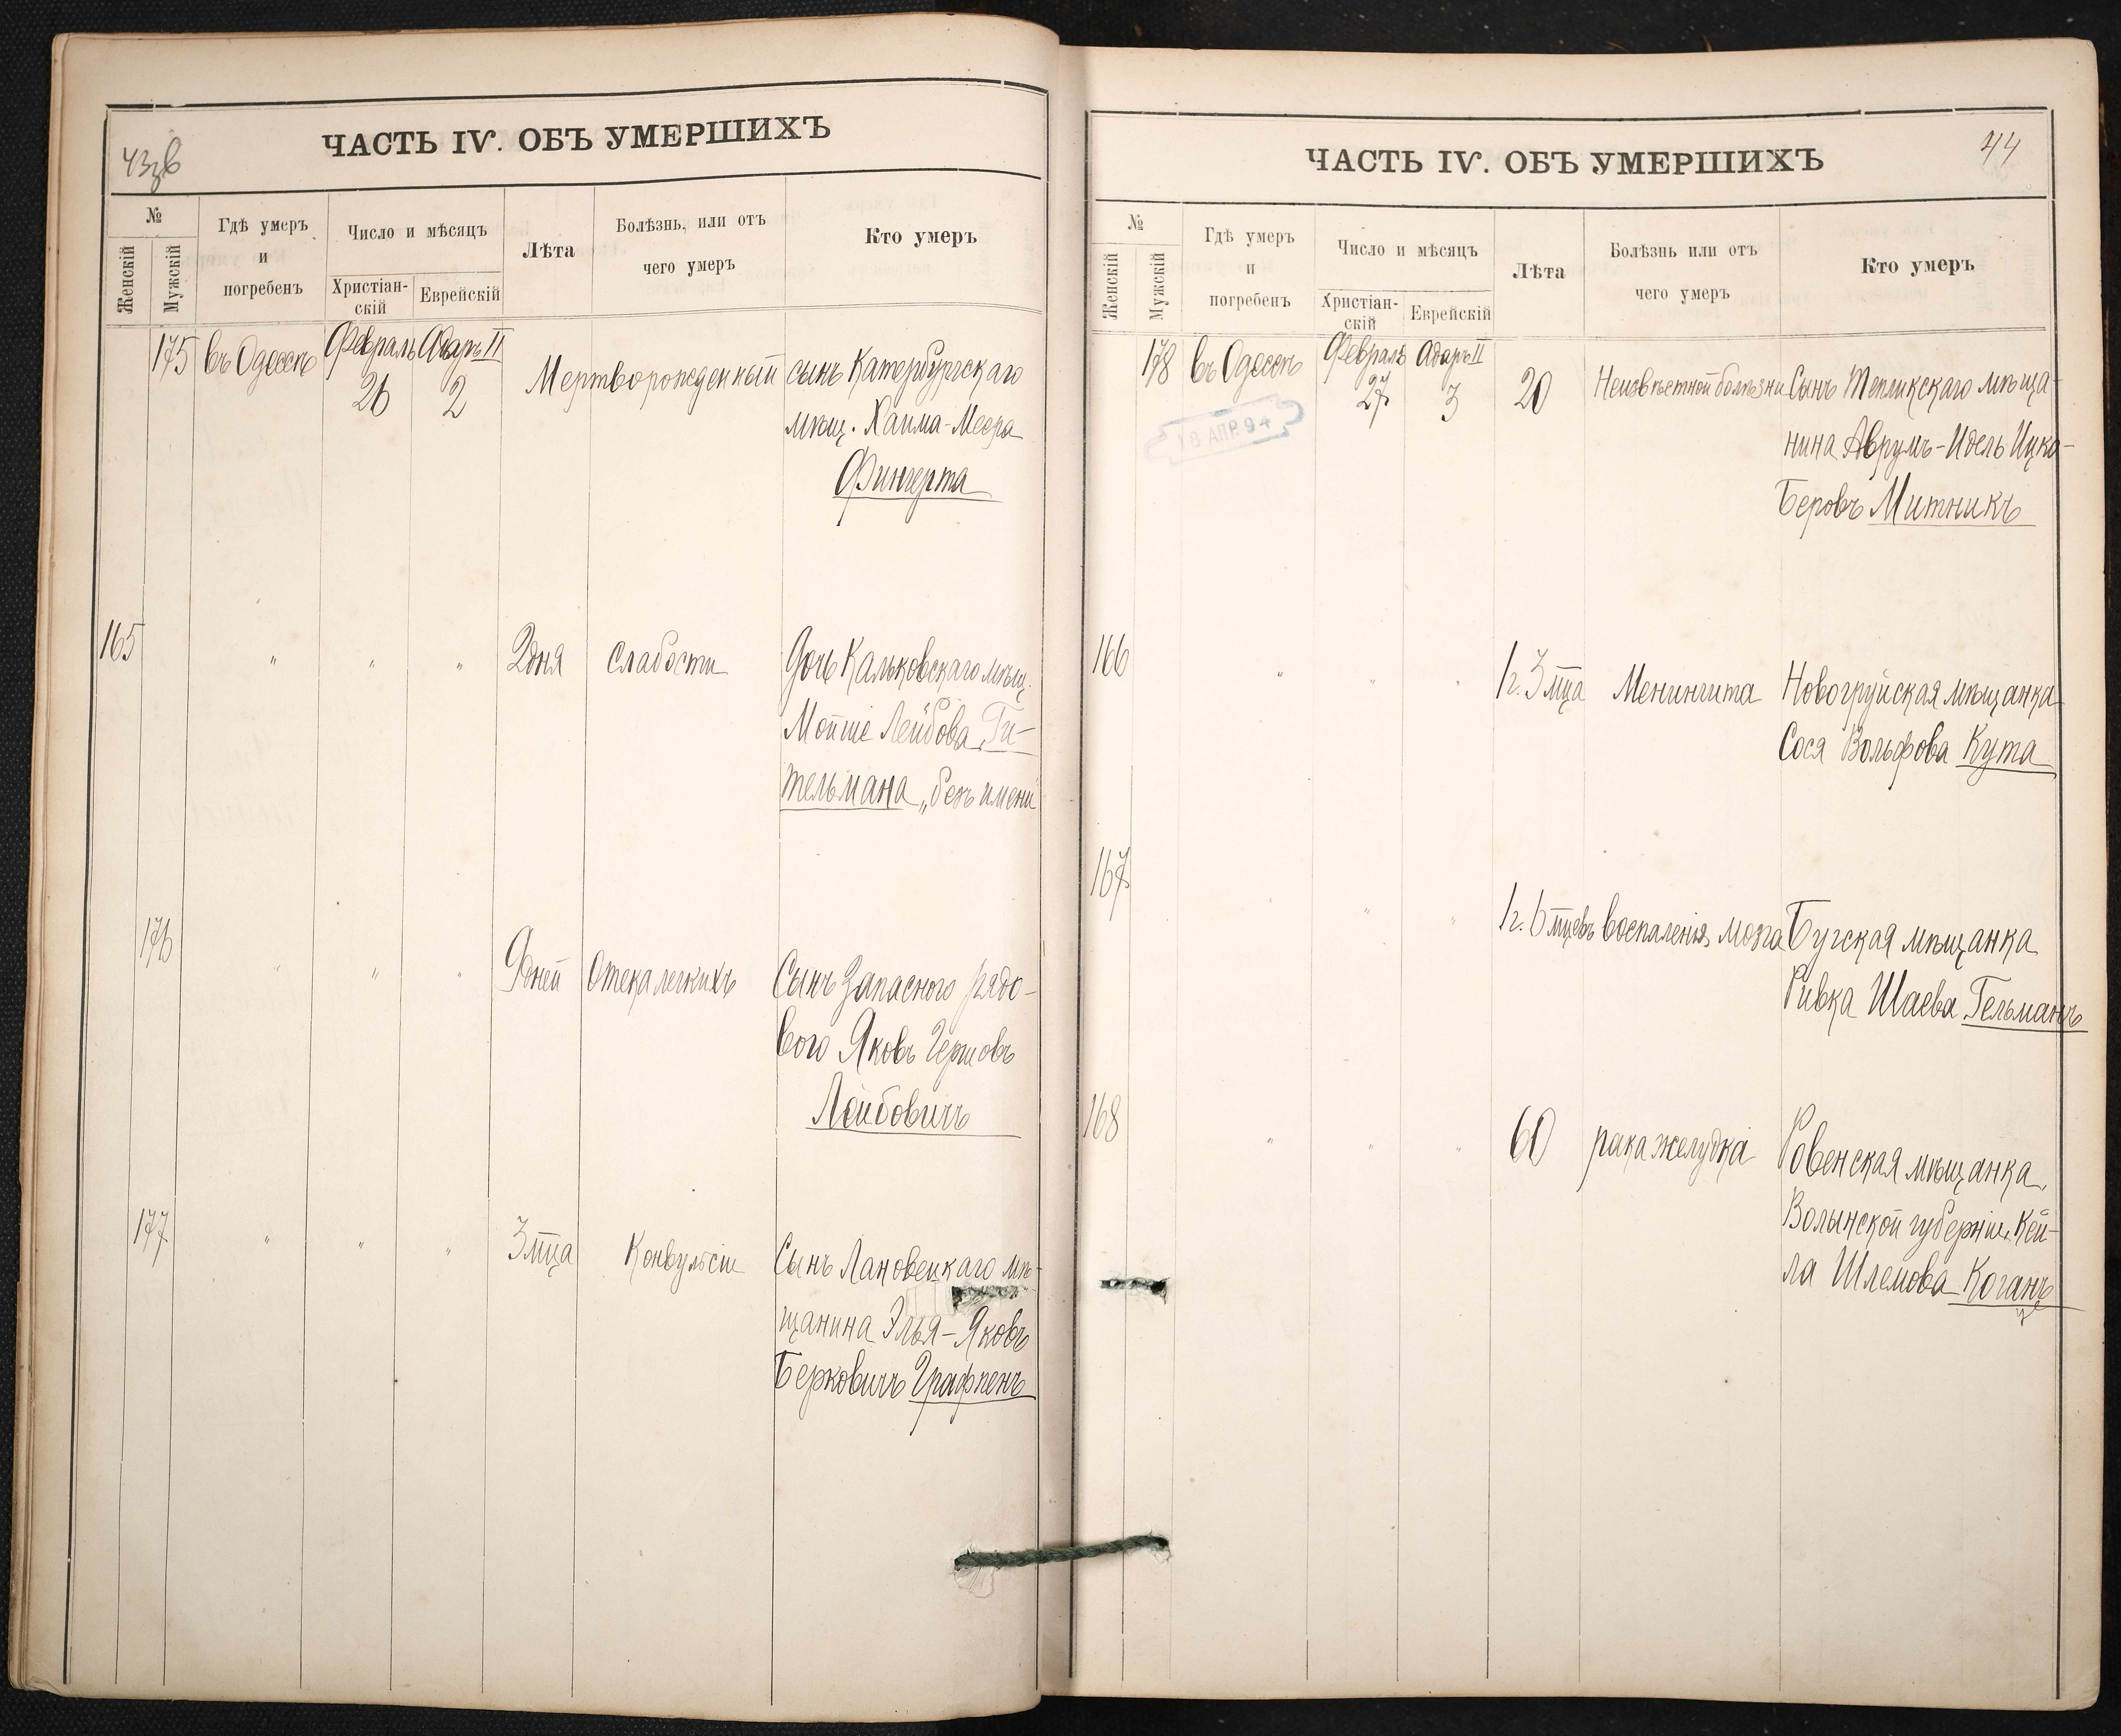 43зв
ЧАСТЬ IV. ОБЪ УМЕРШИХЪ
№
Женскій
Мужскій
Гдѣ умеръ
и
погребенъ
Число и мѣсяцъ
Христіан-
скій
Еврейскій
Лѣта
Болѣзнь, или отъ
чего умеръ
Кто умеръ
175 въ Одессѣ Февраль Адаръ II
26 2 Мертворожденный сынъ Катербургскаго
мѣщ. Хаима-Меера
Фингерта
165 " " " 2 дня Слабости Дочь Кальковскаго мѣщ.
Мойше Лейбова Ги-
тельмана „безъ имени
176 " " " 9 дней Отека легкихъ Сынъ Запасного рядо-
вого Яковъ Гершовъ
Лейбовичъ
177 " " " 3 мца Конвульсіи Сынъ Лановецкаго мѣ-
щанина Элья-Яковъ
Берковичъ Графпенъ
44
ЧАСТЬ IV. ОБЪ УМЕРШИХЪ
№
Женскій
Мужскій
Гдѣ умеръ
и
погребенъ
Число и мѣсяцъ
Христіан-
скій
Еврейскій
Лѣта
Болѣзнь или отъ
чего умеръ
Кто умеръ
178 въ Одессѣ Февраль Адаръ II
27 3 20 Неизвѣстной болѣзни Сынъ Тепликскаго мѣща-
18 АПР. 94
нина Аврумъ-Идель Ицко-
Беровъ Митникъ
166 " " " 1 г. 3 мца Менингита Новогруйская мѣщанка
Сося Вольфова Кута
167 " " " 1 г. 6 мцевъ воспаленія мозга Бугская мѣщанка
Ривка Шаева Гельманъ
168 " " " 60 рака желудка Ровенская мѣщанка,
Волынской губерніи, Кей-
ла Шлемова Коганъ